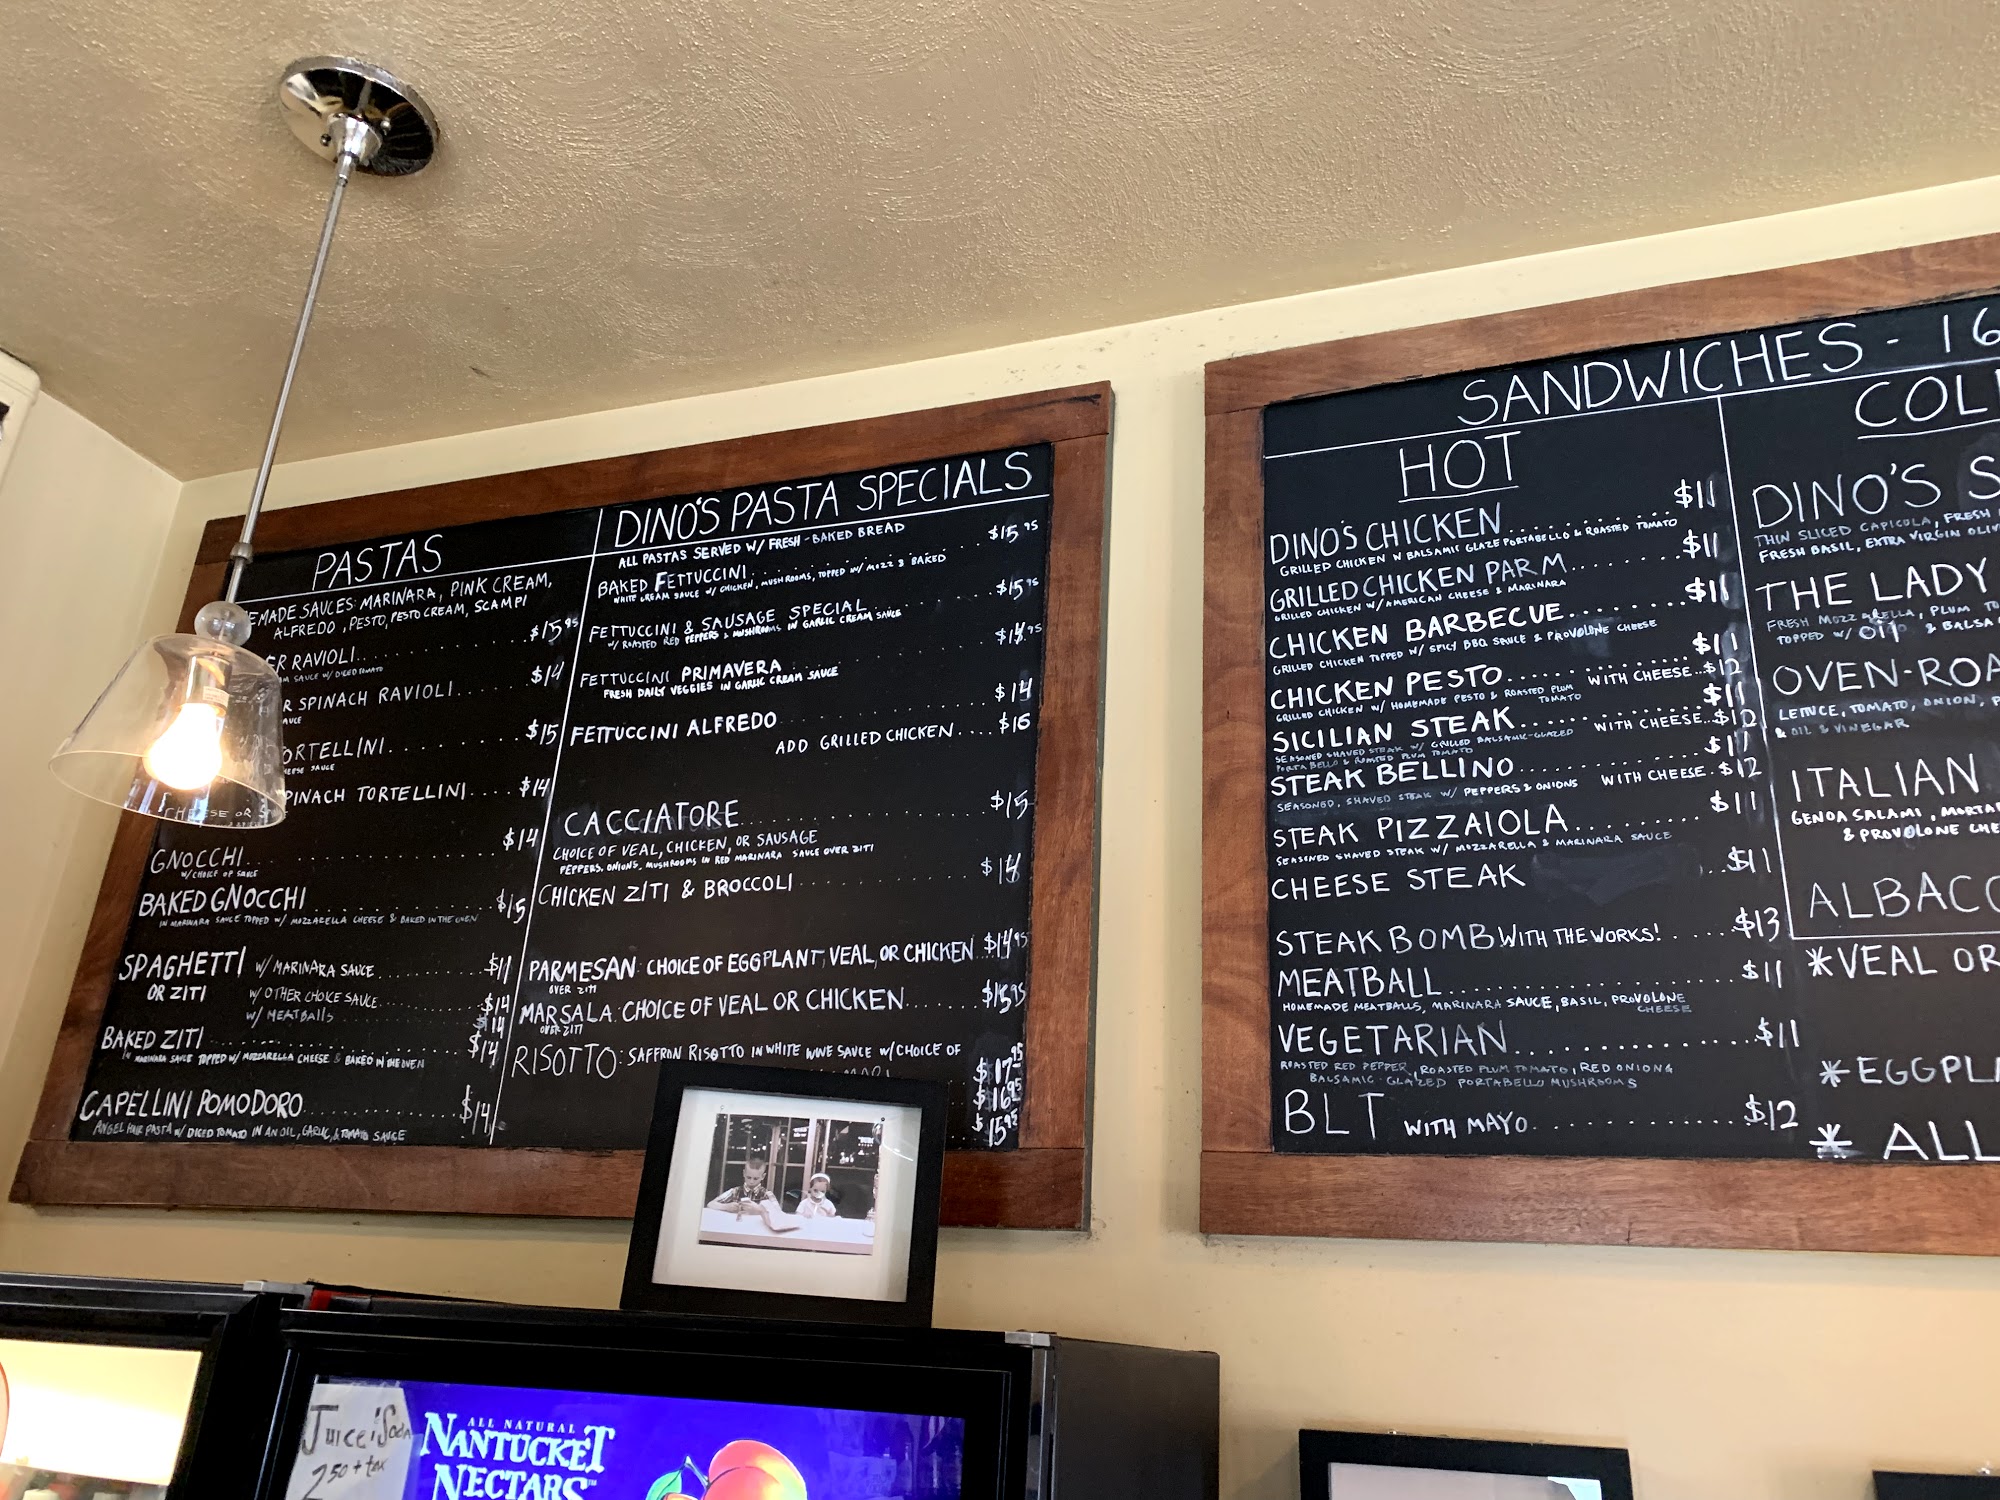 PASTAS
EMADE SAUCES: MARINARA, PINK CREAM,
ALFREDO, PESTO, PESTO CREAM, SCAMPI
ER RAVIOLI... $15.95
M SAUCE W/ DICED TOMATO
R SPINACH RAVIOLI... $14
AUCE
ORTELLINI... $15
HEESE SAUCE
PINACH TORTELLINI... $14
CHEESE OR
GNOCCHI... $14
W/ CHOICE OF SAUCE
BAKED GNOCCHI... $15
IN MARINARA SAUCE TOPPED W/ MOZZARELLA CHEESE & BAKED IN THE OVEN
SPAGHETTI W/ MARINARA SAUCE... $11
OR ZITI W/ OTHER CHOICE SAUCE... $14
W/ MEATBALLS... $14
BAKED ZITI... $14
IN MARINARA SAUCE TOPPED W/ MOZZARELLA CHEESE & BAKED IN THE OVEN
CAPELLINI POMODORO... $14
ANGEL HAIR PASTA W/ DICED TOMATO IN AN OIL, GARLIC, & TOMATO SAUCE
DINO'S PASTA SPECIALS
ALL PASTAS SERVED W/ FRESH-BAKED BREAD
BAKED FETTUCCINI... $15.95
WHITE CREAM SAUCE W/ CHICKEN, MUSHROOMS, TOPPED W/ MOZZ & BAKED
FETTUCCINI & SAUSAGE SPECIAL... $15.95
W/ ROASTED RED PEPPERS & MUSHROOMS IN GARLIC CREAM SAUCE
FETTUCCINI PRIMAVERA... .95
FRESH DAILY VEGGIES IN GARLIC CREAM SAUCE
FETTUCCINI ALFREDO... $14
ADD GRILLED CHICKEN.... $16
CACCIATORE... $15
CHOICE OF VEAL, CHICKEN, OR SAUSAGE
PEPPERS, ONIONS, MUSHROOMS IN RED MARINARA SAUCE OVER ZITI
CHICKEN ZITI & BROCCOLI... $14
PARMESAN: CHOICE OF EGGPLANT, VEAL, OR CHICKEN $14.95
OVER ZITI
MARSALA: CHOICE OF VEAL OR CHICKEN... $15.95
OVER ZITI
RISOTTO: SAFFRON RISOTTO IN WHITE WINE SAUCE W/ CHOICE OF
$17.95
$16.95
$15.95
SANDWICHES - 16
HOT
DINO'S CHICKEN... $11
GRILLED CHICKEN W BALSAMIC GLAZE PORTABELLO & ROASTED TOMATO
GRILLED CHICKEN PARM... $11
GRILLED CHICKEN W/ AMERICAN CHEESE & MARINARA
CHICKEN BARBECUE... $11
GRILLED CHICKEN TOPPED W/ SPICY BBQ SAUCE & PROVOLONE CHEESE
CHICKEN PESTO... $11
WITH CHEESE... $12
GRILLED CHICKEN W/ HOMEMADE PESTO & ROASTED PLUM
TOMATO
SICILIAN STEAK... $11
WITH CHEESE... $12
SEASONED SHAVED STEAK W/ GRILLED BALSAMIC-GLAZED
PORTABELLO & ROASTED PLUM TOMATO
STEAK BELLINO... $11
WITH CHEESE. $12
SEASONED, SHAVED STEAK W/ PEPPERS & ONIONS
STEAK PIZZAIOLA... $11
SEASONED SHAVED STEAK W/ MOZZARELLA & MARINARA SAUCE
CHEESE STEAK .. $11
STEAK BOMB WITH THE WORKS!... $13
MEATBALL... $11
HOMEMADE MEATBALLS, MARINARA SAUCE, BASIL, PROVOLONE
CHEESE
VEGETARIAN... $11
ROASTED RED PEPPER, ROASTED PLUM TOMATO, RED ONIONS
BALSAMIC-GLAZED PORTABELLO MUSHROOMS
BLT WITH MAYO... $12
COL
DINO'S S
THIN SLICED CAPICOLA, FRESH
FRESH BASIL, EXTRA VIRGIN OLIV
THE LADY
FRESH MOZZARELLA, PLUM TO
TOPPED W/ OIL & BALSA
OVEN-ROA
LETTUCE, TOMATO, ONION, P
& OIL & VINEGAR
ITALIAN
GENOA SALAMI, MORTA
& PROVOLONE CHE
ALBACO
*VEAL OR
*EGGPLA
* ALL
Juice & Soda
2.50 + tax
ALL NATURAL
NANTUCKET
NECTARS